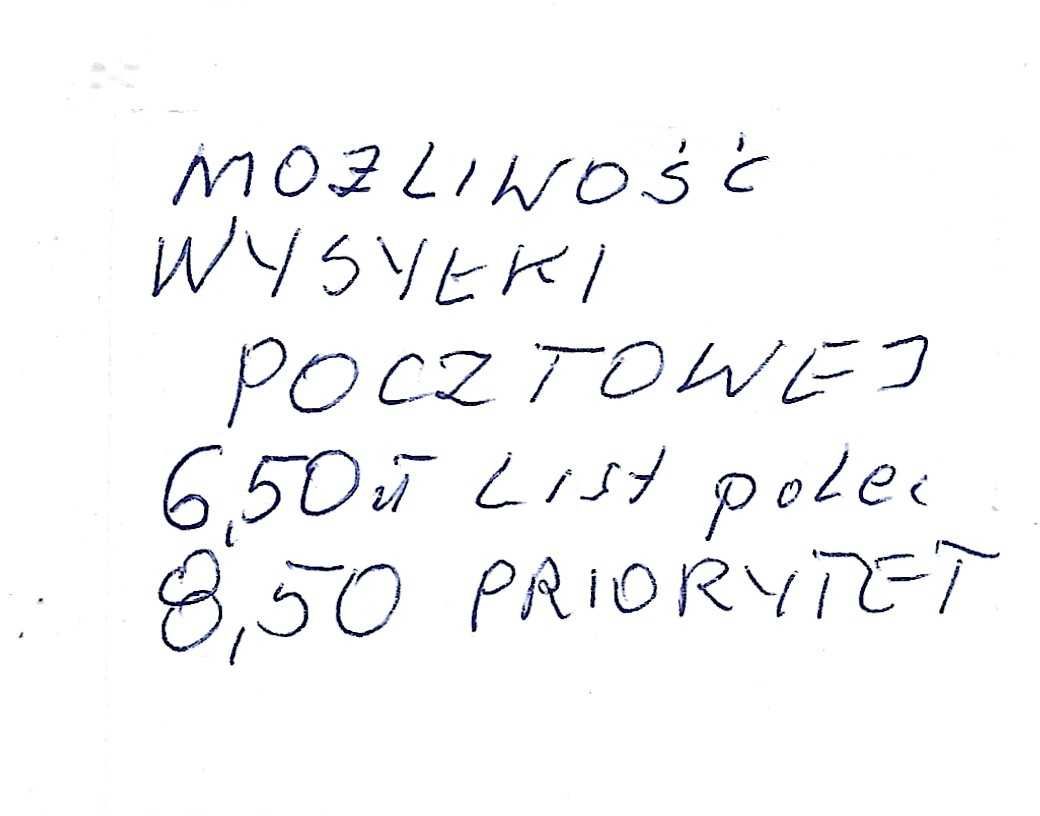 MOŻLIWOŚĆ
WYSYŁKI
POCZTOWEJ
6,50 zł List polec
8,50 PRIORYTET